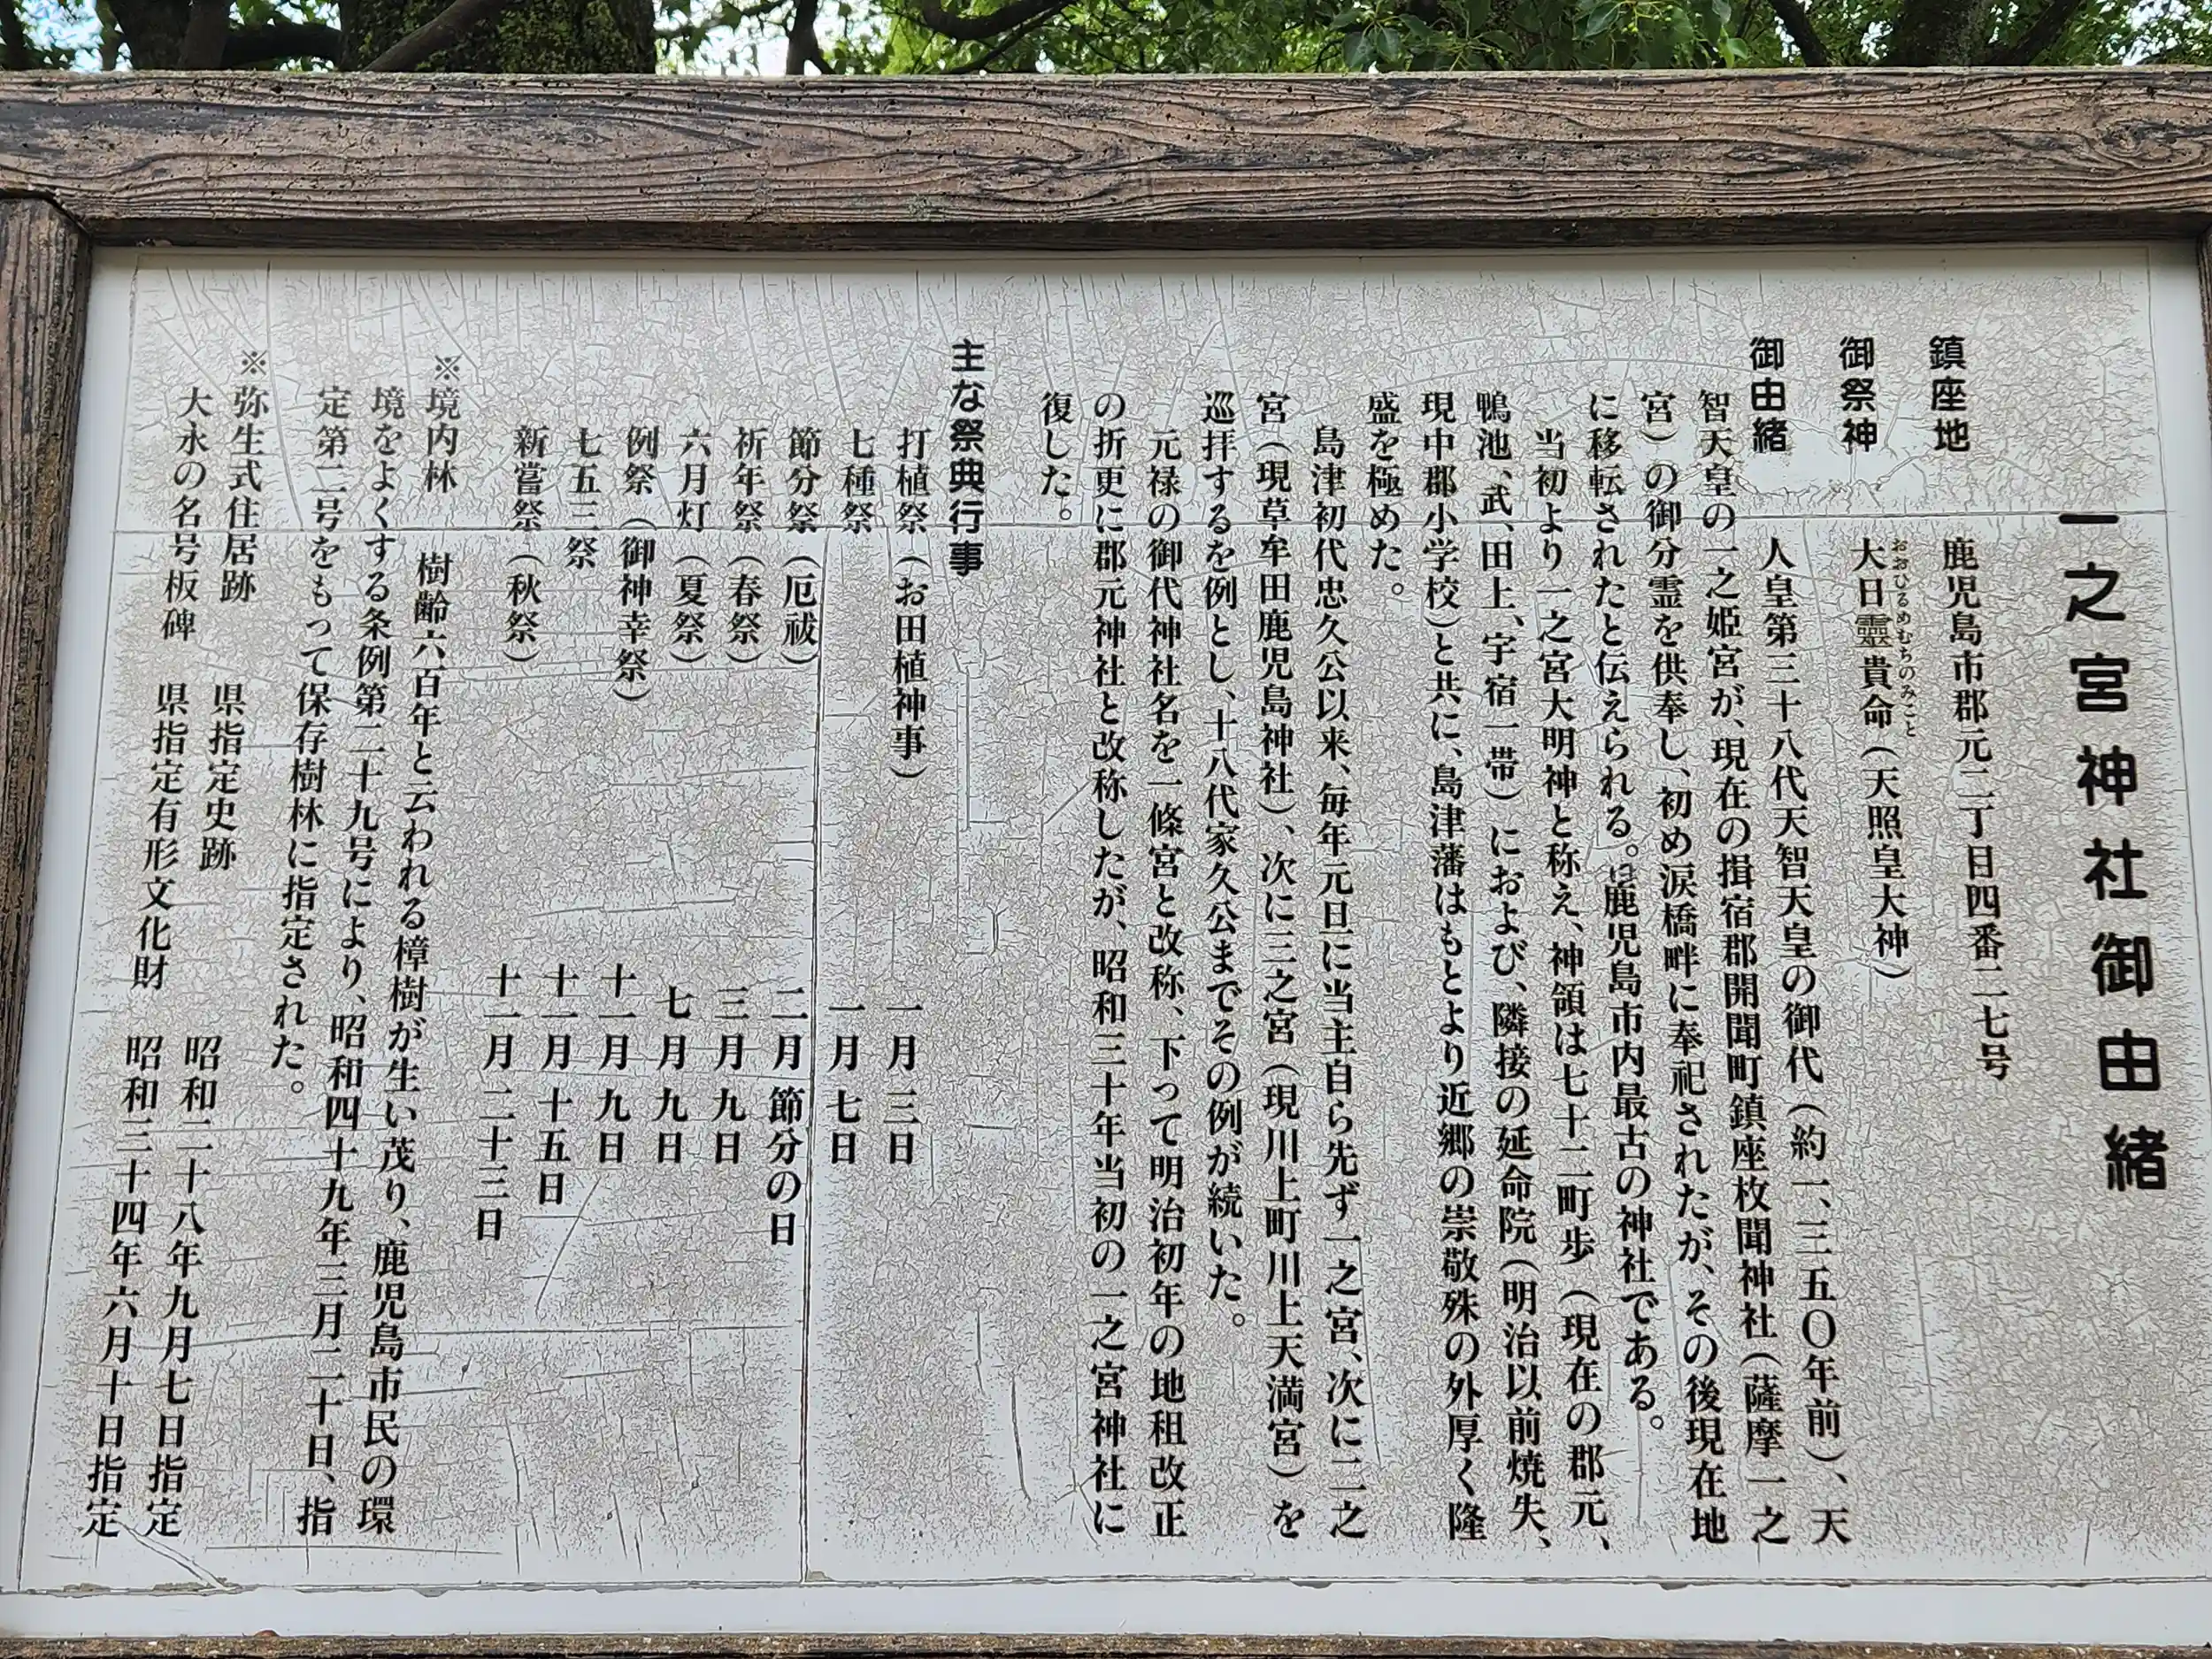 一之宮神社御由緒
鎮座地　鹿児島市郡元二丁目四番二七号
おおひるめむちのみこと
御祭神　大日靈貴命（天照皇大神）
御由緒　人皇第三十八代天智天皇の御代（約一、三五〇年前）、天
智天皇の一之姫宮が、現在の揖宿郡開聞町鎮座枚聞神社（薩摩一之
宮）の御分霊を供奉し、初め涙橋畔に奉祀されたが、その後現在地
に移転されたと伝えられる。鹿児島市内最古の神社である。
当初より一之宮大明神と称え、神領は七十二町歩（現在の郡元、
鴨池、武、田上、宇宿一帯）におよび、隣接の延命院（明治以前焼失、
現中郡小学校）と共に、島津藩はもとより近郷の崇敬殊の外厚く隆
盛を極めた。
島津初代忠久公以来、毎年元旦に当主自ら先ず一之宮、次に二之
宮（現草牟田鹿児島神社）、次に三之宮（現川上町川上天満宮）を
巡拝するを例とし、十八代家久公までその例が続いた。
元禄の御代神社名を一條宮と改称、下って明治初年の地租改正
の折更に郡元神社と改称したが、昭和三十年当初の一之宮神社に
復した。
主な祭典行事
打植祭（お田植神事）　一月三日
七種祭　一月七日
節分祭（厄祓）　二月節分の日
祈年祭（春祭）　三月九日
六月灯（夏祭）　七月九日
例祭（御神幸祭）　十一月九日
七五三祭　十一月十五日
新嘗祭（秋祭）　十一月二十三日
※境内林　樹齢六百年と云われる樟樹が生い茂り、鹿児島市民の環
境をよくする条例第二十九号により、昭和四十九年三月二十日、指
定第二号をもって保存樹林に指定された。
※弥生式住居跡　県指定史跡　昭和二十八年九月七日指定
大永の名号板碑　県指定有形文化財　昭和三十四年六月十日指定